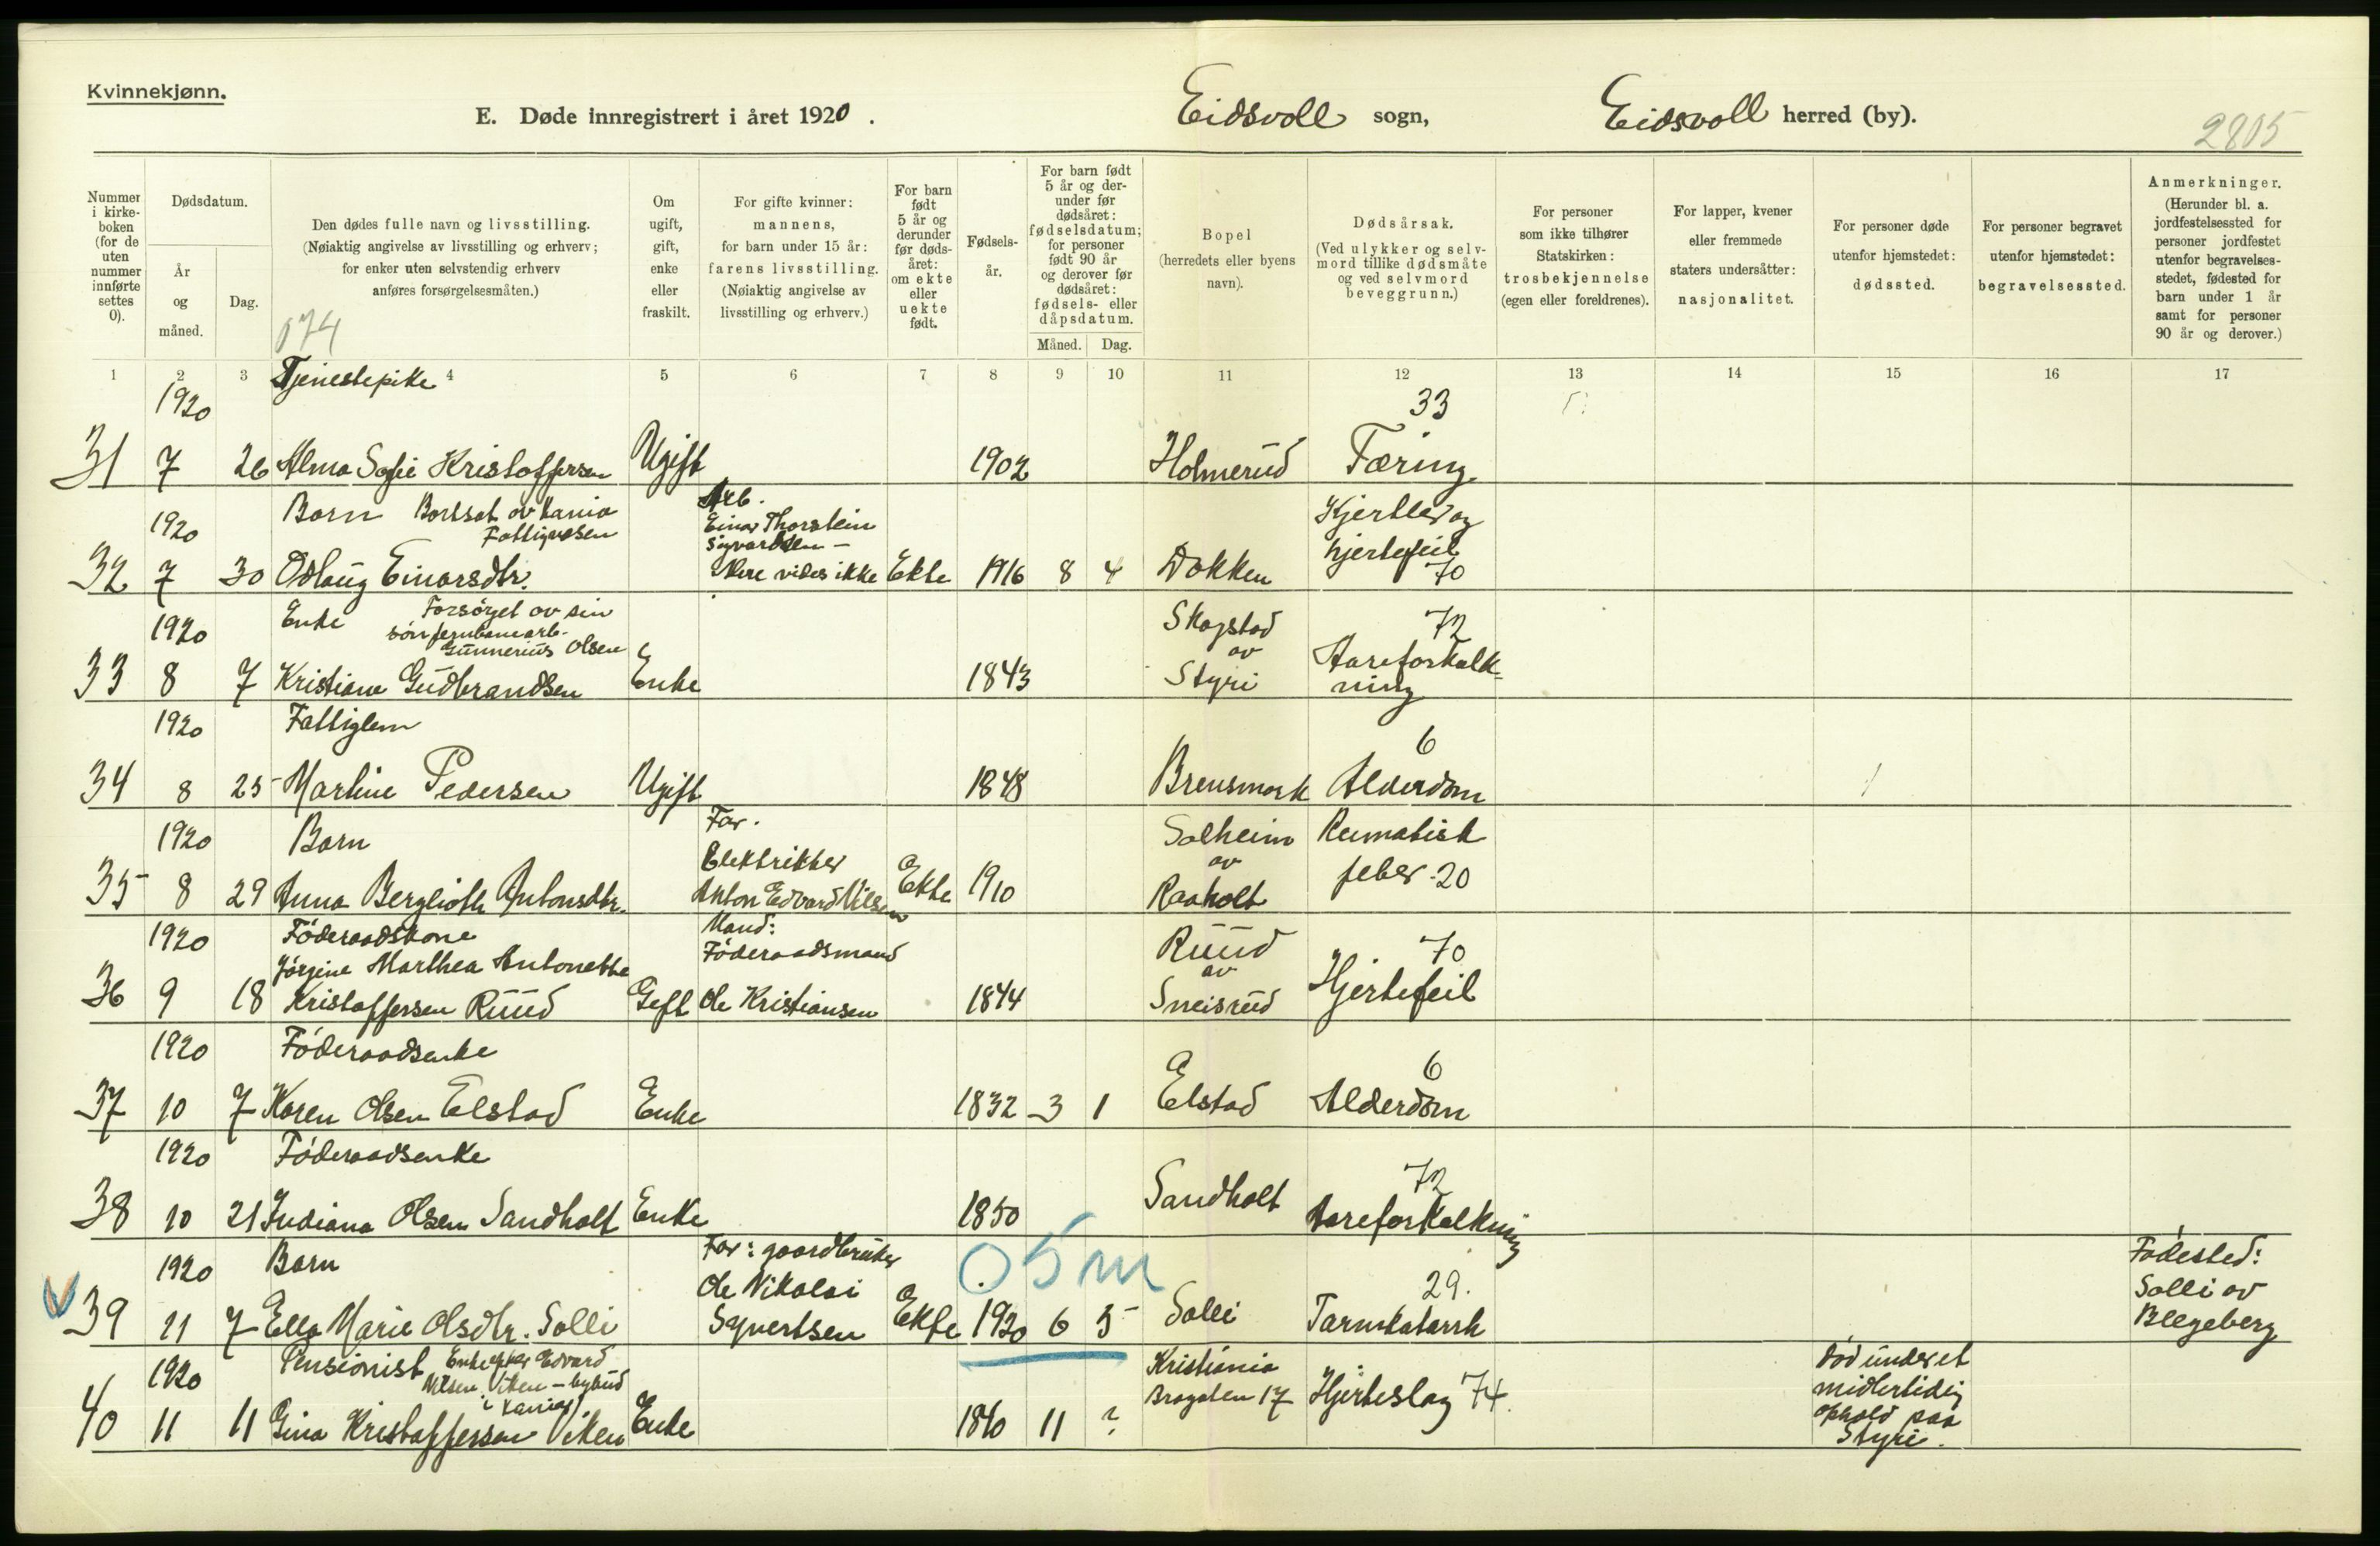 Kvinnekjønn.
E. Døde innregistrert i året 1920.
Eidsvoll sogn,
Eidsvoll herred (by).
2805
Nummer i kirke- boken (for de uten nummer innførte settes 0).
Dødsdatum.
År og måned.
Dag.
Den dødes fulle navn og livsstilling.
(Nøiaktig angivelse av livsstilling og erhverv;
for enker uten selvstendig erhverv
anføres forsørgelsesmåten.)
174
Om ugift, gift, enke eller fraskilt.
For gifte kvinner: mannens,
for barn under 15 år:
farens livsstilling.
(Nøiaktig angivelse av
livsstilling og erhverv.)
For barn født 5 år og derunder før døds- året: om ekte eller uekte født.
Fødsels- år.
For barn født 5 år og der- under før dødsåret: fødselsdatum; for personer født 90 år og derover før dødsåret: fødsels- eller dåpsdatum.
Måned. Dag.
Bopel (herredets eller byens navn).
Dødsårsak.
(Ved ulykker og selv- mord tillike dødsmåte og ved selvmord beveggrunn.)
For personer som ikke tilhører Statskirken: trosbekjennelse (egen eller foreldrenes).
For lapper, kvener eller fremmede staters undersåtter: nasjonalitet.
For personer døde utenfor hjemstedet: dødssted.
For personer begravet utenfor hjemstedet: begravelsessted.
Anmerkninger.
(Herunder bl. a. jordfestelsessted for personer jordfestet utenfor begravelses- stedet, fødested for barn under 1 år samt for personer 90 år og derover.)
1 2 3 4 5 6 7 8 9 10 11 12 13 14 15 16 17
1920 Tjenestepike 33
31 7 26 Alma Sofie Kristoffersen Ugift 1902 Holmerud Tæring
1920 Barn Bortsat av Kania Fattigvesen Arb. Einar Thorstein Sigvardsen – Mere vides ikke Kjertler og hjertefeil 70
32 7 30 Odlaug Einarsdtr. Ekte 1916 8 4 Dokken
1920 Enke Forsørget av sin søn jernbanearb. Gunnerius Olsen Skogstad av Styri 72
33 8 7 Kristiane Gudbrandsen Enke 1843 Aareforkalk- ning
1920 Fattiglem 6
34 8 25 Martine Pedersen Ugift 1848 Brensmork Alderdom
1920 Barn Far: Elektriker Anton Edvard Nilsen Solheim av Raaholt Reumatisk feber 20
35 8 29 Anna Berglioth Antonsdtr. Ekte 1910
1920 Föderaadskone Mand: Föderaadsmand Ruud av Sneisrud 70
36 9 18 Jörgine Marthea Antonette Kristoffersen Ruud Gift Ole Kristiansen 1844 Hjertefeil
1920 Föderaadsenke 6
37 10 7 Karen Olsen Elstad Enke 1832 3 1 Elstad Alderdom
1920 Föderaadsenke 72
38 10 21 Indiana Olsen Sandholt Enke 1850 Sandholt Aareforkalkning
1920 Barn Far: gaardbruker Ole Nikolai Syvertsen 05m 29. Födested: Solli av Blegeberg
39 11 7 Ella Marie Olsdtr. Solli Ekte 1920 6 5 Solli Tarmkatarrh
1920 Pensionist Enke efter Edvard Nilsen Viken – bybud i Kania Kristiania Brogaten 17 Hjerteslag 74. Död under et midlertidig ophold paa Styri.
40 11 11 Gina Kristoffersen Viken Enke 1860 11 ?